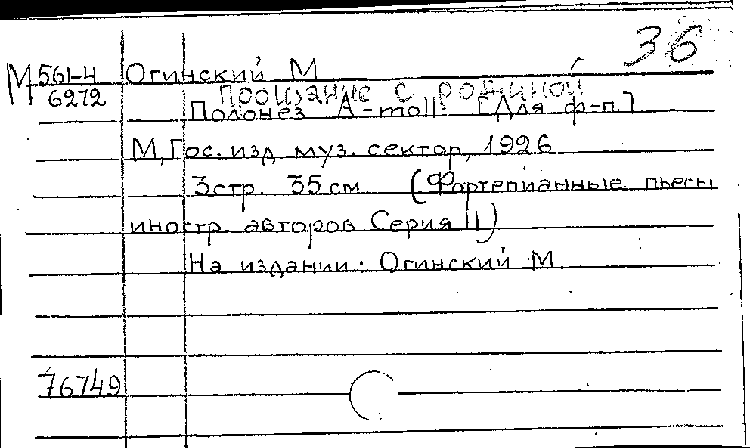 36
М 561-4 Огинский М
6272
Прощание с родиной
Полонез A-moll. [Для ф-п.]
М, Гос. изд. муз. сектор, 1926
3 стр. 35 см (Фортепианные пьесы
иностр. авторов Серия II)
На издании: Огинский М.
76749